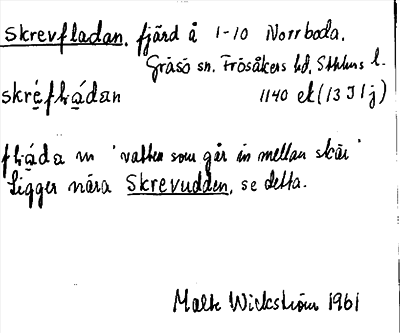 Skrevfladan, fjärd å 1-10 Norrboda,
Gräsö sn. Frösåkers hd, Sthlms l.
skréflådan 1140 ek (13 I 1j)
flåda m 'vatten som går in mellan skär'
Ligger nära Skrevudden, se detta.
Malte Wickström 1961